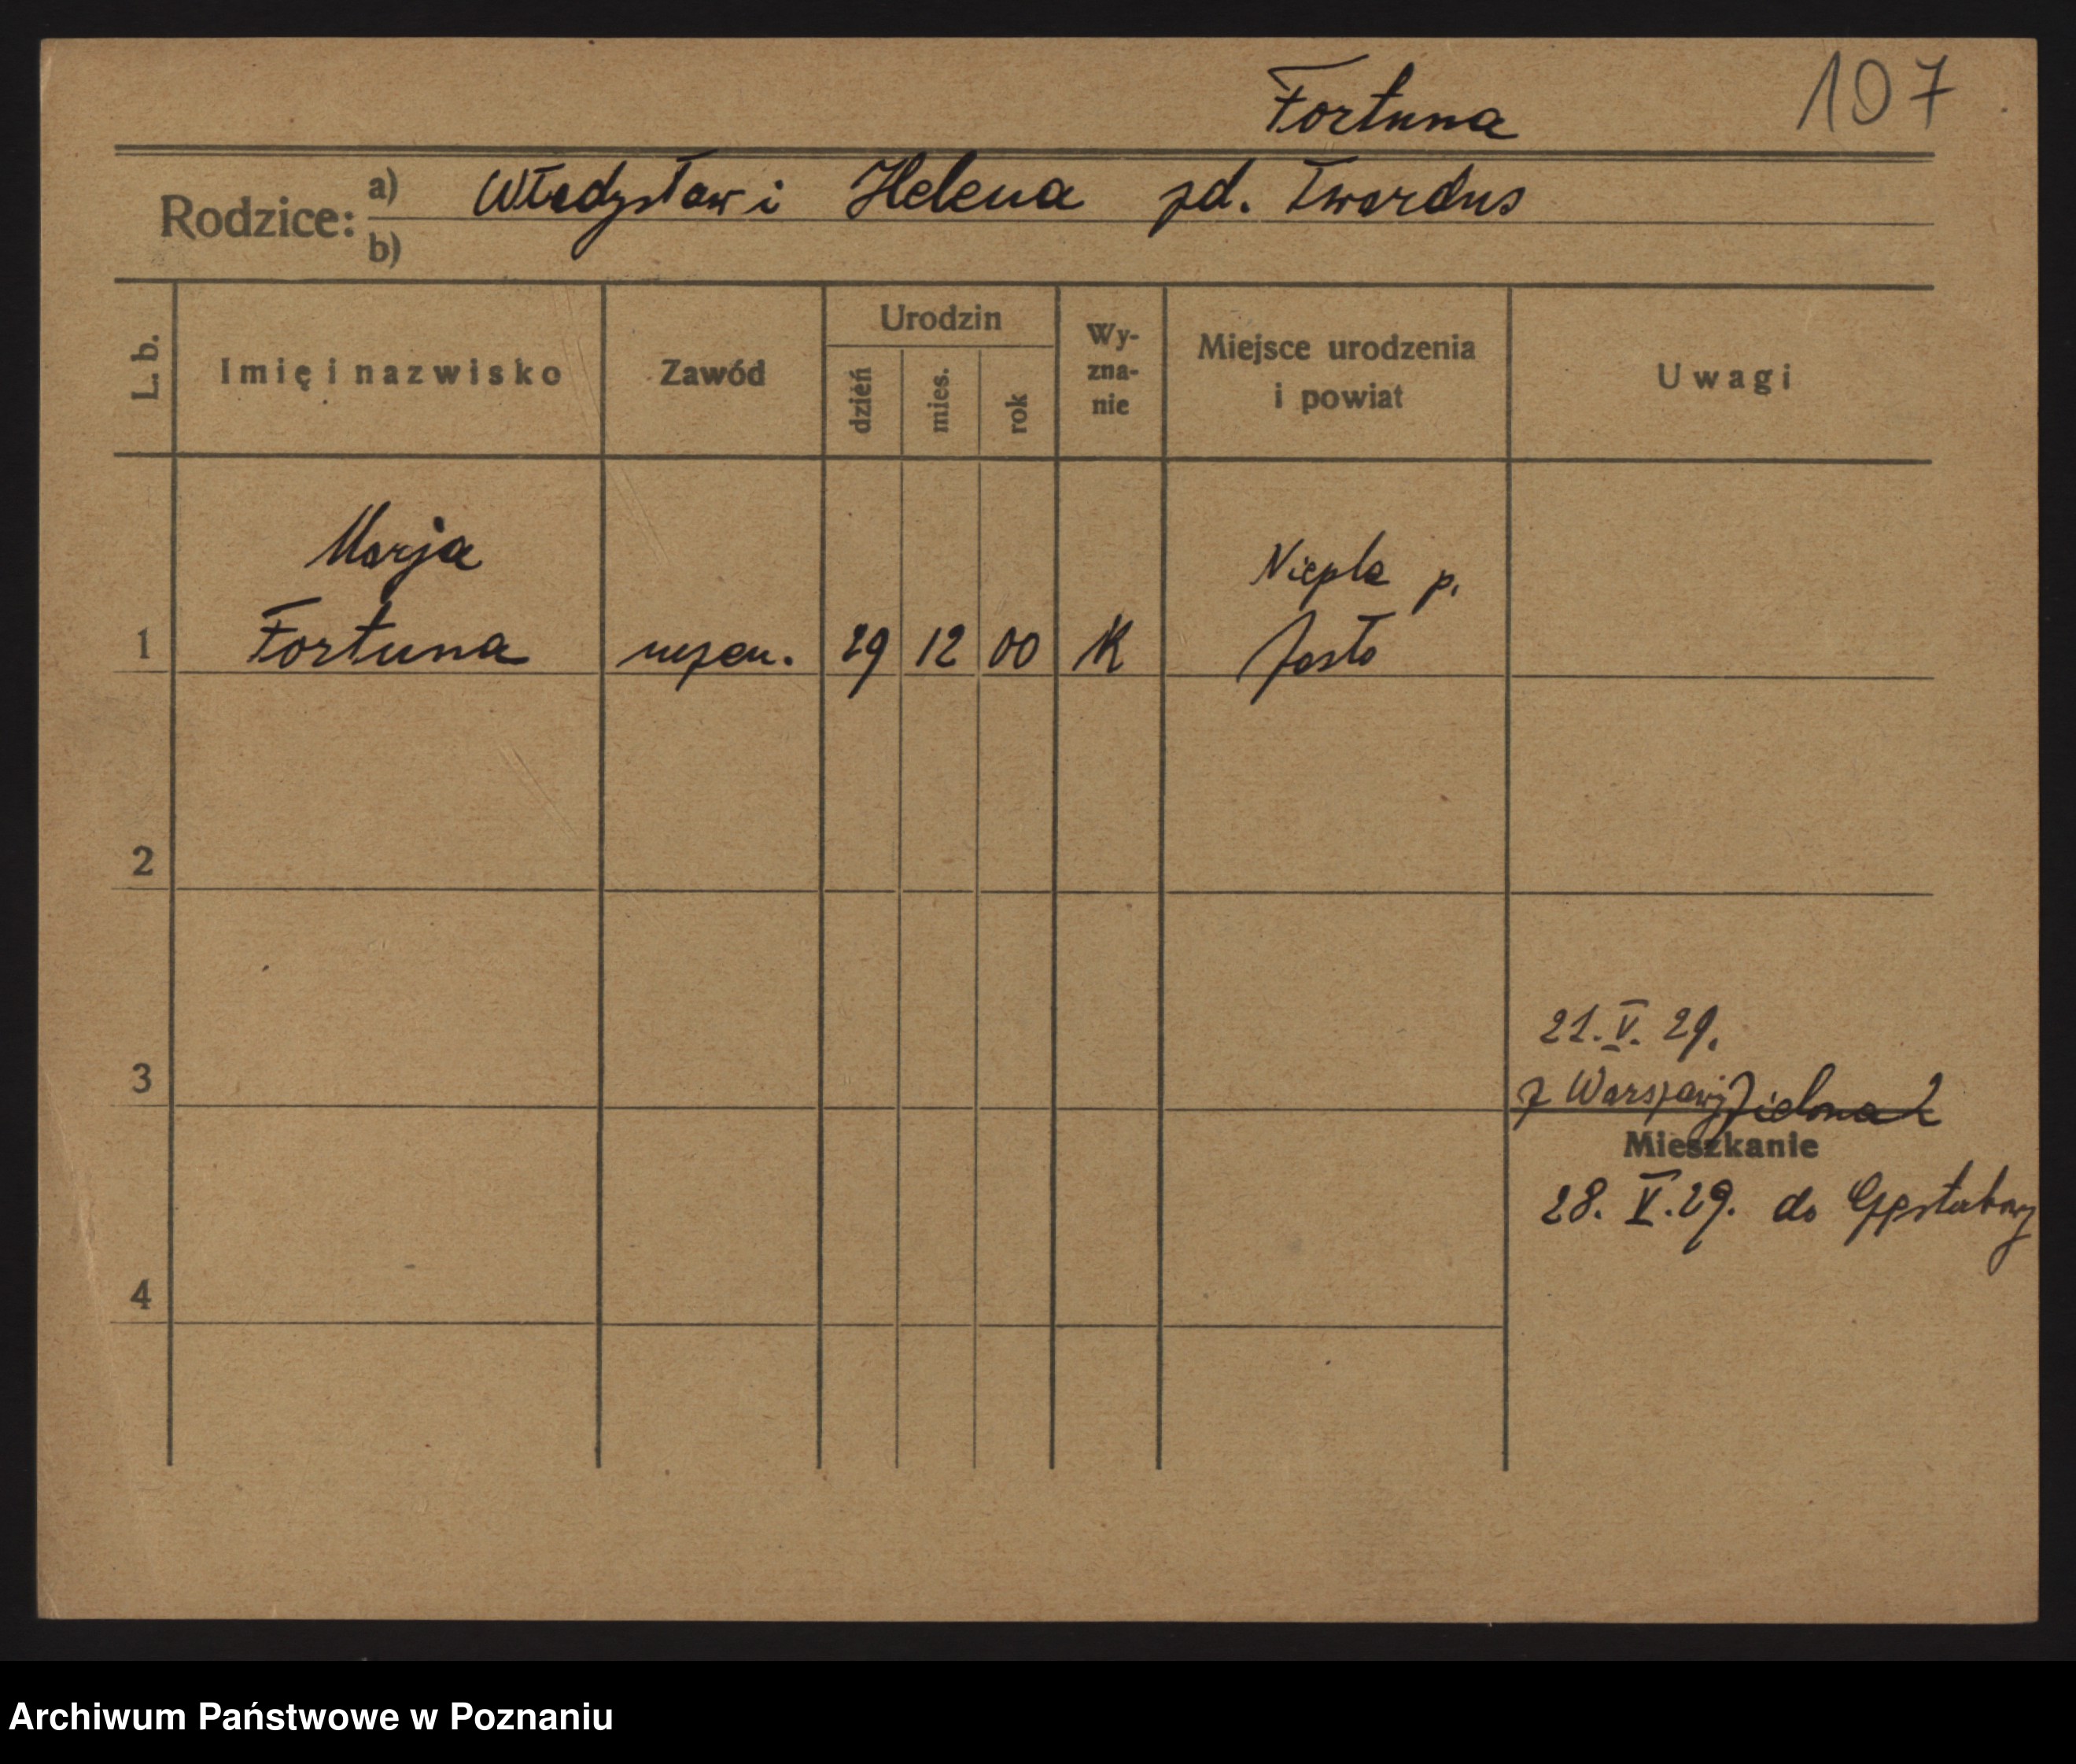 Fortuna
107
Rodzice:
a) Władysław i Helena zd. Twardus
b)
L. b.
Imię i nazwisko
Zawód
Urodzin
dzień
mies.
rok
Wy-
zna-
nie
Miejsce urodzenia
i powiat
Uwagi
Marja
Fortuna
29 12 00 K
Niepla p.
Jasło
1
2
3
4
21. V. 29.
z Warszawy Zielona 2
Mieszkanie
28. V. 29. do
Archiwum Państwowe w Poznaniu